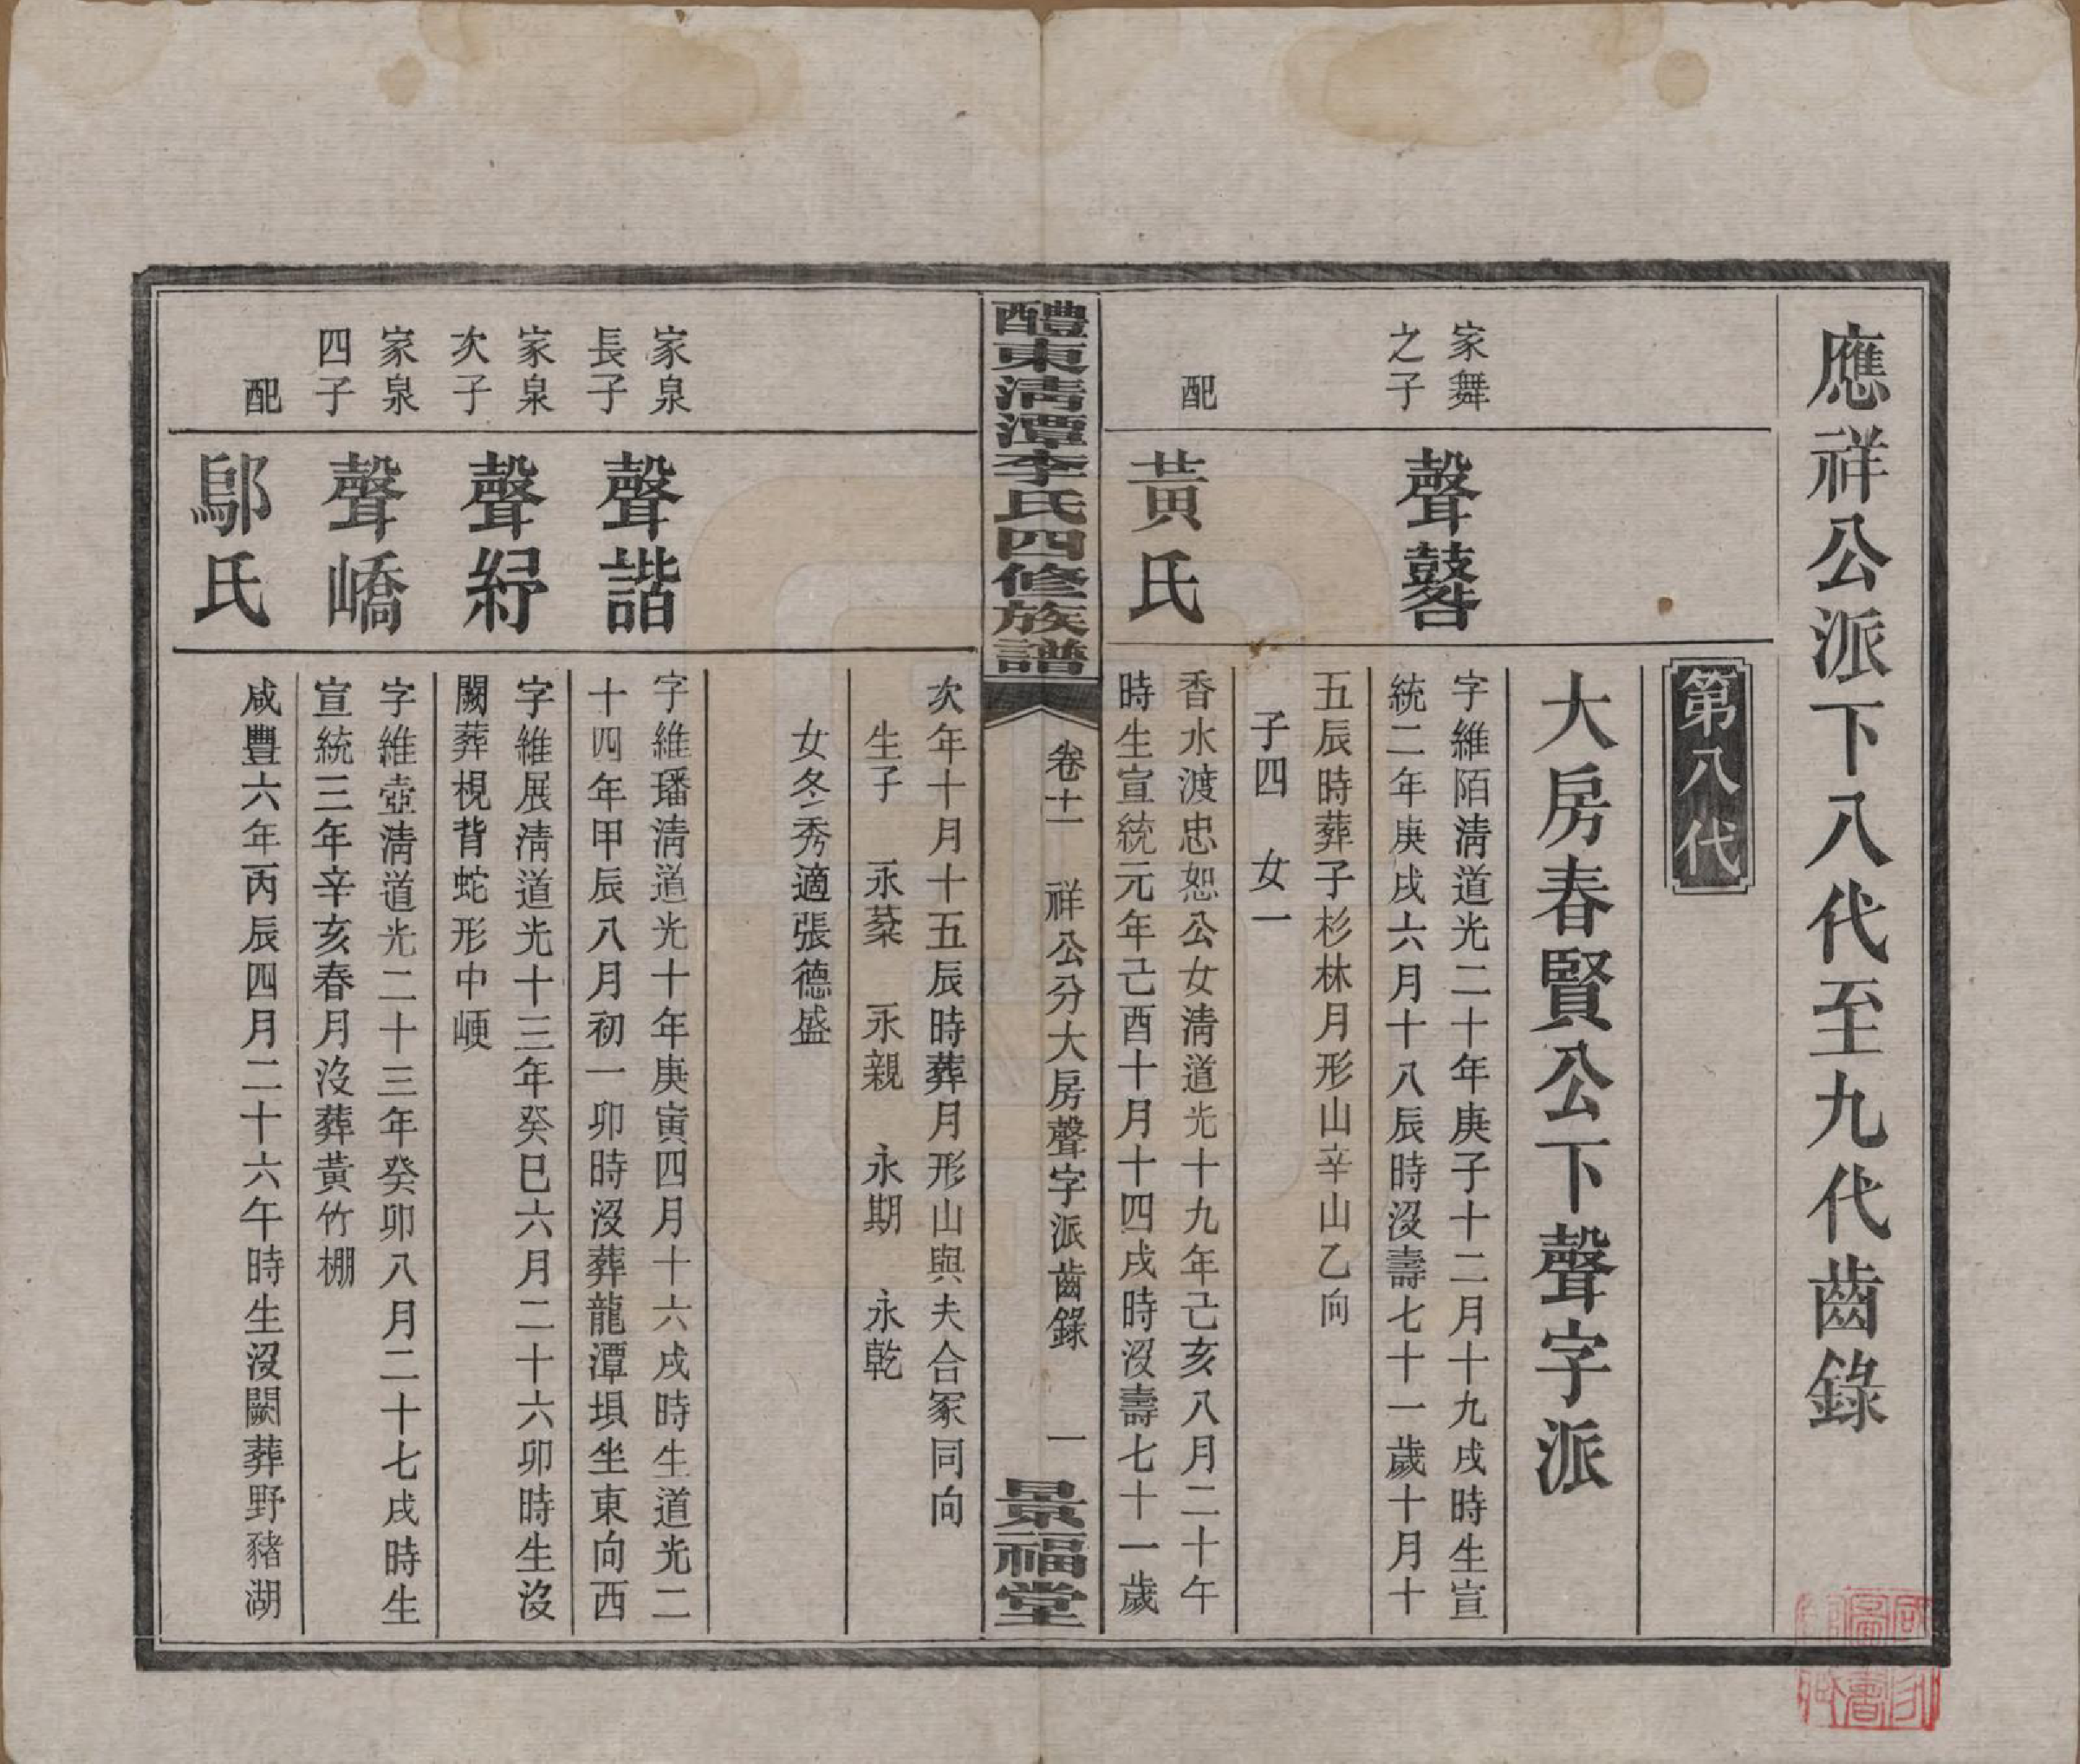 應祥公派下八代至九代齒錄
第八代
大房春賢公下聲字派
家舞
之子
聲鼛
字維陌淸道光二十年庚子十二月十九戌時生宣
統二年庚戌六月十八辰時沒壽七十一歲十月十
五辰時葬子杉林月形山辛山乙向
子四 女一
配
黃氏
香水渡忠恕公女淸道光十九年己亥八月二十午
時生宣統元年己酉十月十四戌時沒壽七十一歲
醴東淸潭李氏四修族譜
卷十一 祥公分大房聲字派齒錄 一
景福堂
次年十月十五辰時葬月形山與夫合冢同向
生子 永棻 永親 永期 永乾
女冬秀適張德盛
家泉
長子
聲諧
字維璠淸道光十年庚寅四月十六戌時生道光二
十四年甲辰八月初一卯時沒葬龍潭埧坐東向西
家泉
次子
聲紓
字維展淸道光十三年癸巳六月二十六卯時生沒
闕葬梘背蛇形中崾
家泉
四子
聲嶠
字維壺淸道光二十三年癸卯八月二十七戌時生
宣統三年辛亥春月沒葬黃竹棚
配
鄔氏
咸豐六年丙辰四月二十六午時生沒闕葬野豬湖